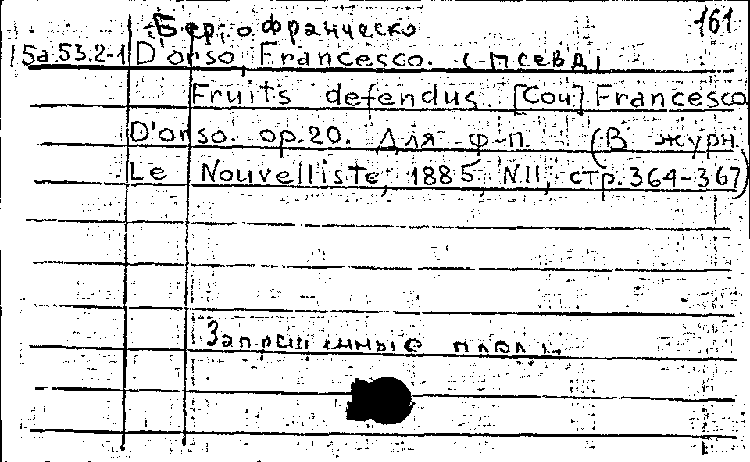 161
франческо
15а.53.2-1 D'orso, Francesco. (псевд)
Fruits defendus. [Соч] Francesco
D'orso. op.20. Для ф-п. (В журн.
Le Nouvelliste, 1885, N11, стр.364-367)
Запрещенные плоды.